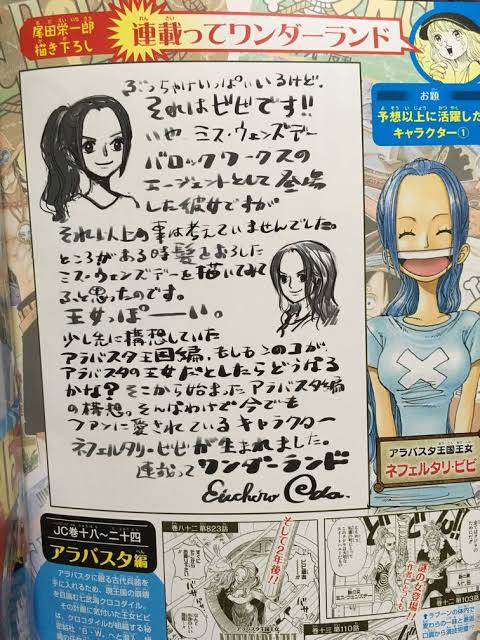 尾田栄一郎
描き下ろし
連載ってワンダーランド
お題
予想以上に活躍した
キャラクター①
ぶっちゃけいっぱいいるけど、
それはビビです!!
いや ミス・ウェンズデー
バロックワークスの
エージェントとして登場
した彼女ですが
それ以上の事は考えていませんでした。
ところがある時髪をおろした
ミス・ウェンズデーを描いてみて
ふと思ったのです。
王女っぽーい。
少し先に構想していた
アラバスタ王国編、もしもこのコが
アラバスタの王女だとしたらどうなる
かな? そこから始まったアラバスタ編
の構想。そんなわけで今でも
ファンに愛されているキャラクター
ネフェルタリ・ビビが生まれました。
連載って ワンダーランド
Eiichiro Oda.
アラバスタ王国王女
ネフェルタリ・ビビ
JC巻十八〜二十四
アラバスタ編
アラバスタに眠る古代兵器を
手に入れるため、現王国の崩壊
を目論む七武海クロコダイル。
その計画に気付いた王女ビビ
は、クロコダイルが組織する秘
巻八十二 第823話
そして2年後!!
アラバスタ王国
謎の女登場!
作者にとっても
巻十二 第103話
巻十三 第110話
↑ラブーンの体内で